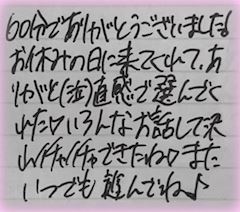 60分でありがとうございました!
お休みの日に来てくれて、あ
りがと(泣)直感で選んでく
れた♡いろんなお話して沢
山イチャイチャできたね♡また
いつでも遊んでね♪